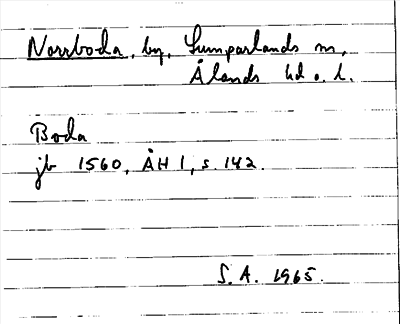 Norrboda, by, Sumparlands m,
Ålands hd o. l.
Boda
jb 1560, ÅH 1, s. 142.
S. A. 1965.